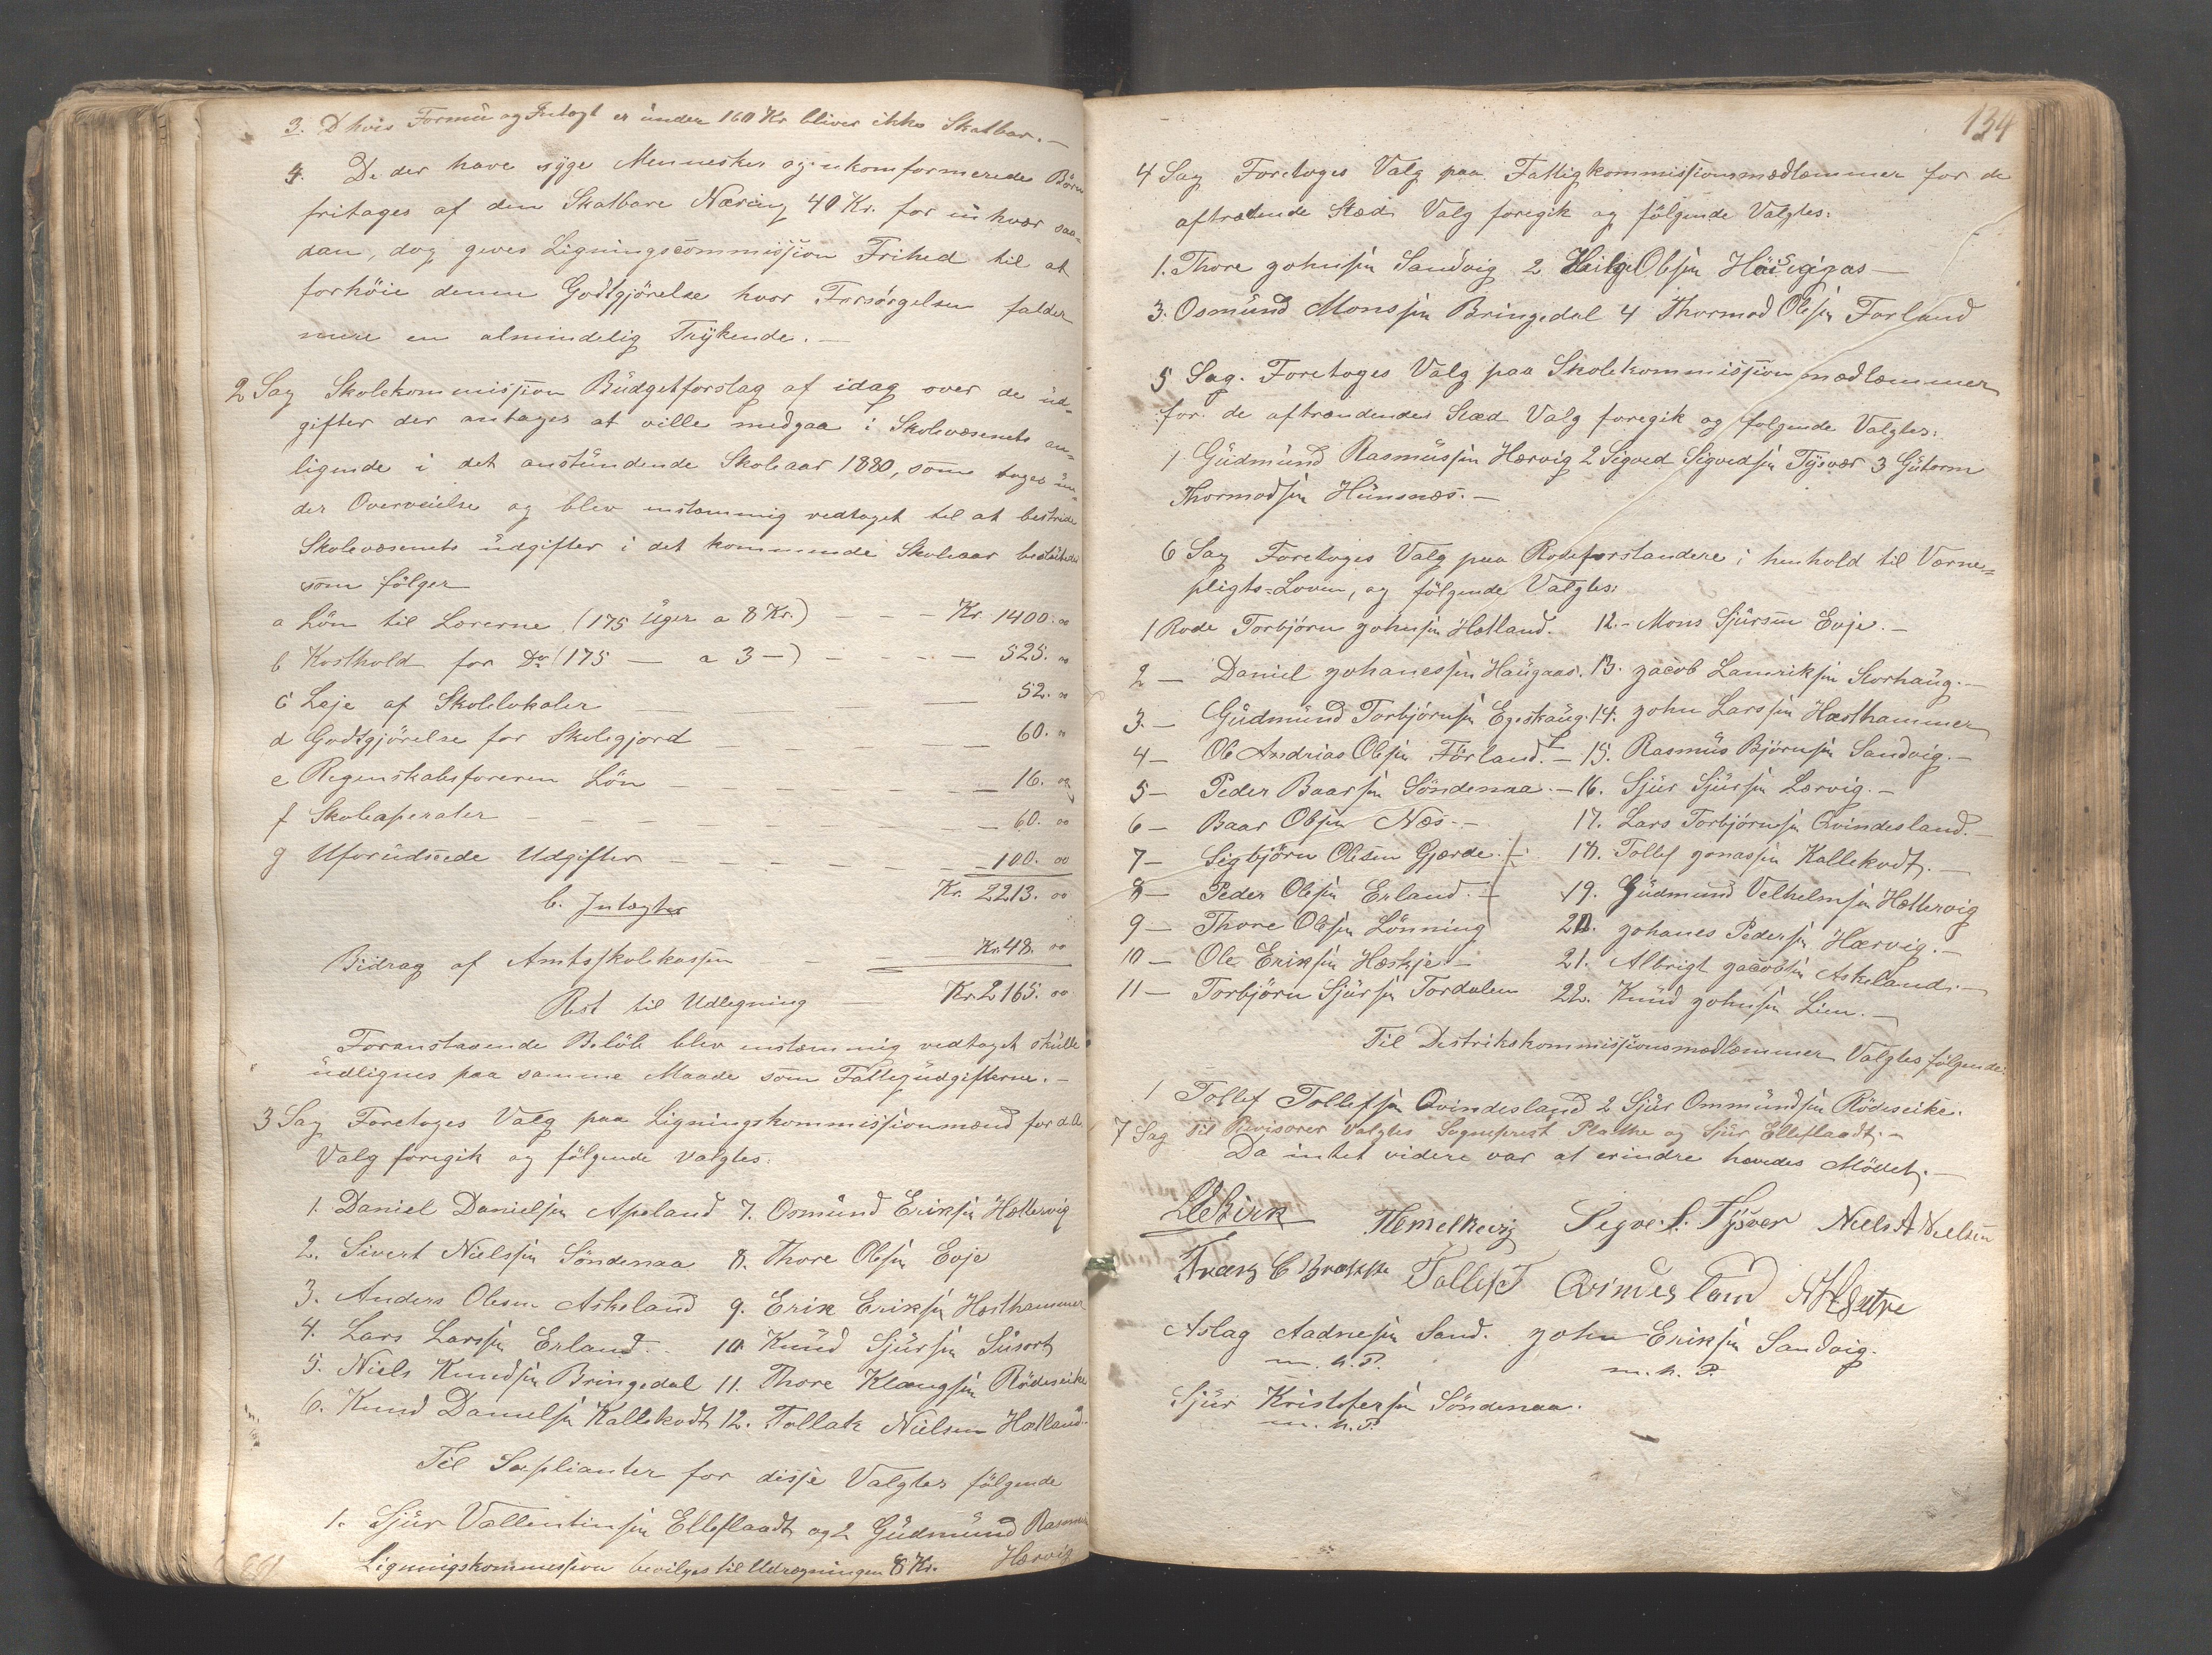 3. D hvis Formue og Indtægt er under 160 Kr bliver ikke Skatbar.-
4. De der have syge Mennesker og ukomformerede Børn
fritages af den Skatbare Næring 40 Kr. for en hvær saa-
dan, dog geves Ligningscommissjion Frihed til at
forhöie denne Godtgjörelse hvor Forsörgelsen falder
mere en almindelig Trÿkende.-
2 Sag Skolekommissjion Büdgetforslag af idag over de üd-
gifter der antages at ville medgaa i Skolevæsenets an-
ligende i det anstündende Skoleaar 1880, som toges ün-
der Overveielse og blev enstæmmig vedtaget til at bestride
Skolevæsenets üdgifter i det kommende Skoleaar
som fölger
a Lön til Lærerne (175 Üger a 8 Kr.) - - Kr. 1400. 00
b Kosthold for Do (175 - a 3 -) - - - - 525. 00
c Leje af Skolelokaler - - 52. 00
d Godtgjörelse for Skolegjord - - - - 60. "
e Regenskabsföreren Lön - - - - - - 16. 00
f Skoleaperater - - - - - - - - 60. 00
g Uforüdseede Udgifter - - - - - - 100. 00
b. Intægter Kr. 2213. 00
Bidrag af Amtsskolekassen - - - Kr. 48. 00
Rest til Udlegning - Kr. 2165. 00
Foranstaaende Belöb blev enstæmmig vedtaget skülle
üdlignes paa samme Maade som Fattigüdgifterne.-
3 Sag Foretoges Valg paa Ligningskommissjionmænd for d.A.
Valg foregik og fölgende valgtes.
1. Daniel Danielsen Apeland 7. Osmünd Eriksen Hettervig
2. Sivert Nielssen Söndenaa 8. Thore Olsen Evje
3. Anders Olesen Askeland 9. Erik Eriksen Hesthammer
4. Lars Larssen Erland.- 10 Knüd Sjürsen Süsort
5. Niels Knudsen Bringedal 11. Thore Klaügsen Rödeseike
6. Knud Danielsen Kallekodt 12. Tollak Nielsen Hatland.
Til Süplianter for disse Valgtes fölgende
1. Sjür Vallentinsen Elleflaadt og 2 Güdmünd Rasmüs
Ligningskommissjion bevilges til Udregningen 8 Kr. Hervig
134
4 Sag Foretoges Valg paa Fattigkommissjionsmedlemmer for de
aftrædende Stæd. Valg foregik og fölgende Valgtes.
1. Thore Johnsen Sandvig 2 Helge Olsen Höiegigas -
3. Osmünd Monssen Bringedal 4 Thormod Olsen Forland
5 Sag. Foretoges Valg paa Skolekommissjion medlemmer
for de aftrændendes Stæd Valg foregik og folgende Valgtes.
1 Güdmünd Rasmüssen Hervig 2 Sigved Sigvedsen Tÿsvær 3 Gütorm
Thormodsen Hünsnæs.-
6 Sag Foretoges Valg paa Rodeforstandere i henhold til Verne-
pligts-Loven, og fölgende Valgtes:
1 Rode Torbjörn Johnsen Hetland. 12.- Mons Sjürsen Evje.-
2 - Daniel Johanessen Haügaas. 13. Jacob Lauriksen Storhaüg.-
3.- Güdmünd Torbjörnsen Egeskaüg. 14. John Larssen Hesthammer
4 - Ole Andrias Olsen Förland. - 15. Rasmüs Björnsen Sandvig.-
5 - Peder Baarsen Söndenaa.- 16. Sjür Sjürsen Lervig.-
6 - Baar Olsen Næs.- 17. Lars Torbjörnsen Qvindesland.-
7 - Sigbjörn Olesen Gjerde.- 18. Tollef Jonassen Kallekodt.-
8 - Peder Olesen Erland.- 19. Güdmünd Velhelmsen Hettervig
9 - Thore Olsen Lönning 20. Johanes Pedersen Hervig.-
10 - Ole Eriksen Heskje.- 21. Albrigt Jacobsen Askeland.-
11 - Torbjörn Sjürsen Tordalen 22. Knüd Johnsen Lien.-
Til Destrikskommissjionsmedlemmer Valgtes fölgende:
1 Tollef Tollefsen Qvindesland 2 Sjür Ommündsen Rödeseike.
7 Sag Til Revisorer Valgtes Sogneprest Plathe og Sjür Elleflaadt.-
Da intet videre var at erindre hævedes Mödet.-
Sigve. S. Tÿsver Niels A Nielsen
Tollef T Qvindesland
Aslag Aadnesen Sand. John Eriksen Sandvig.
m. h. P. m. h. P.
Sjür Kristofersen Söndenaa.
m. h. P.